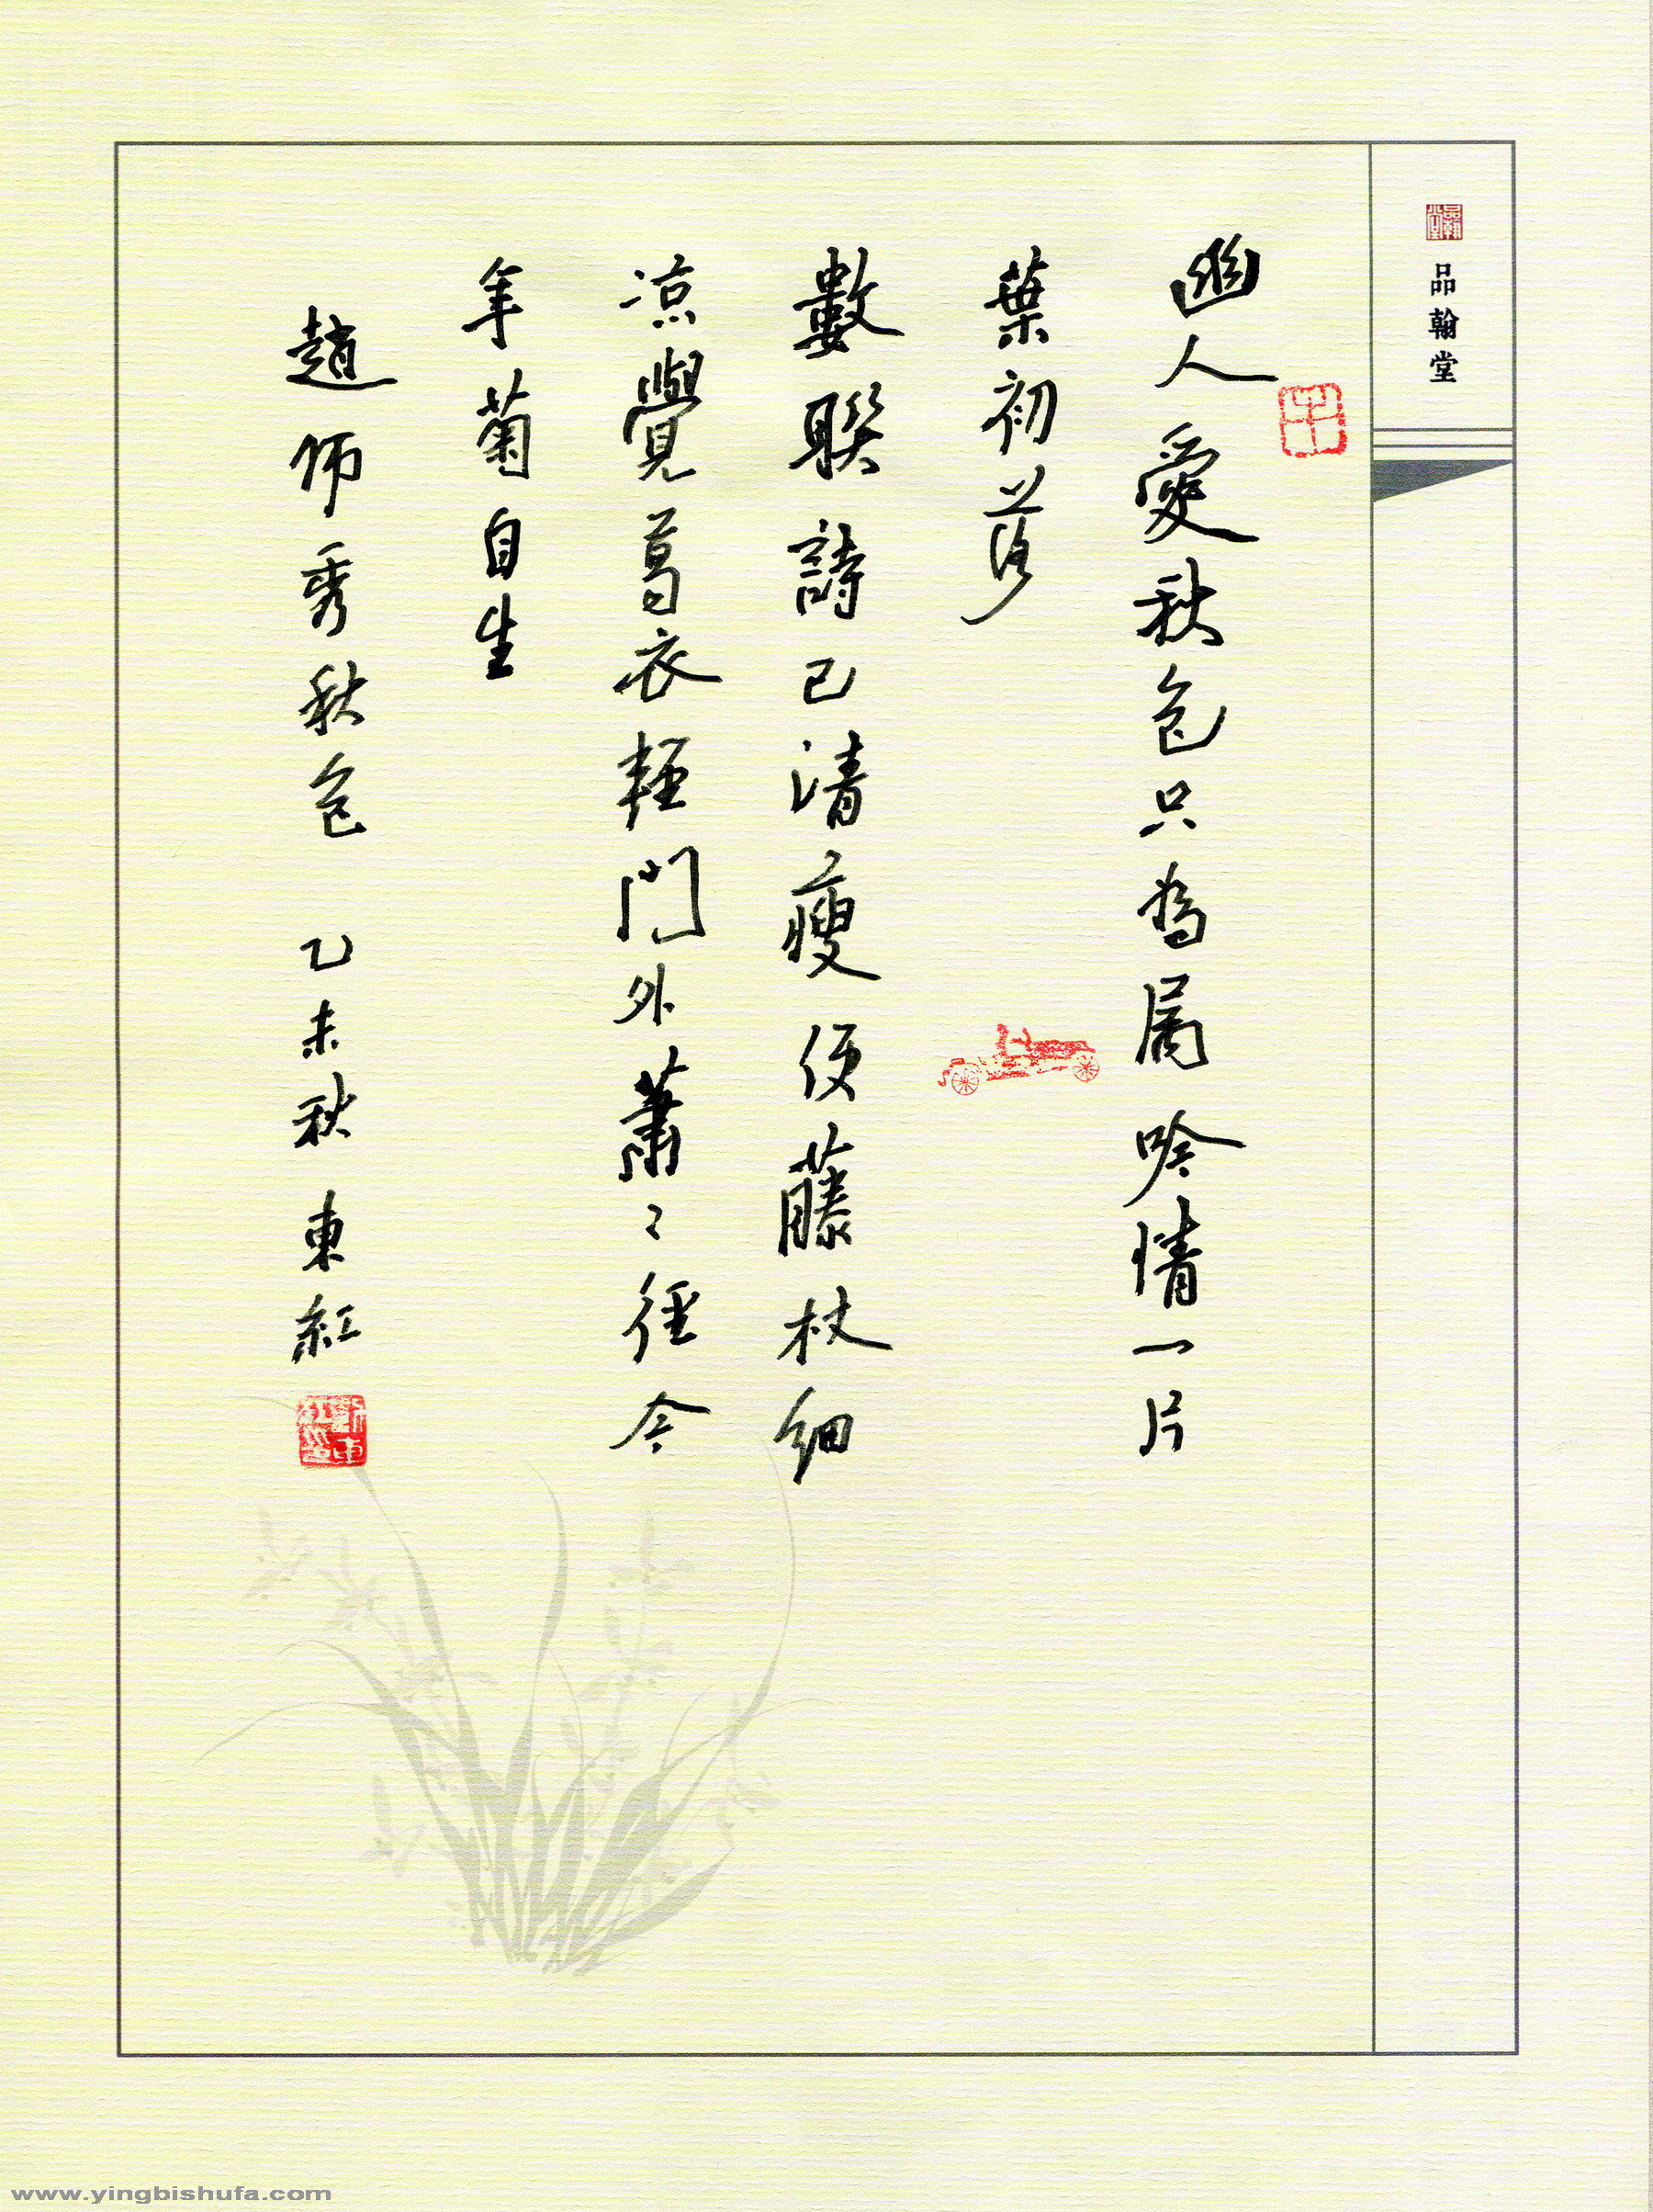 品翰堂
幽人愛秋色只為屬吟情一片
葉初落
數聯詩已清瘦便藤杖細
凉覺葛衣輕門外蕭〻徑今
年菊自生
趙師秀秋色 乙未秋 東紅
www.yingbishufa.com